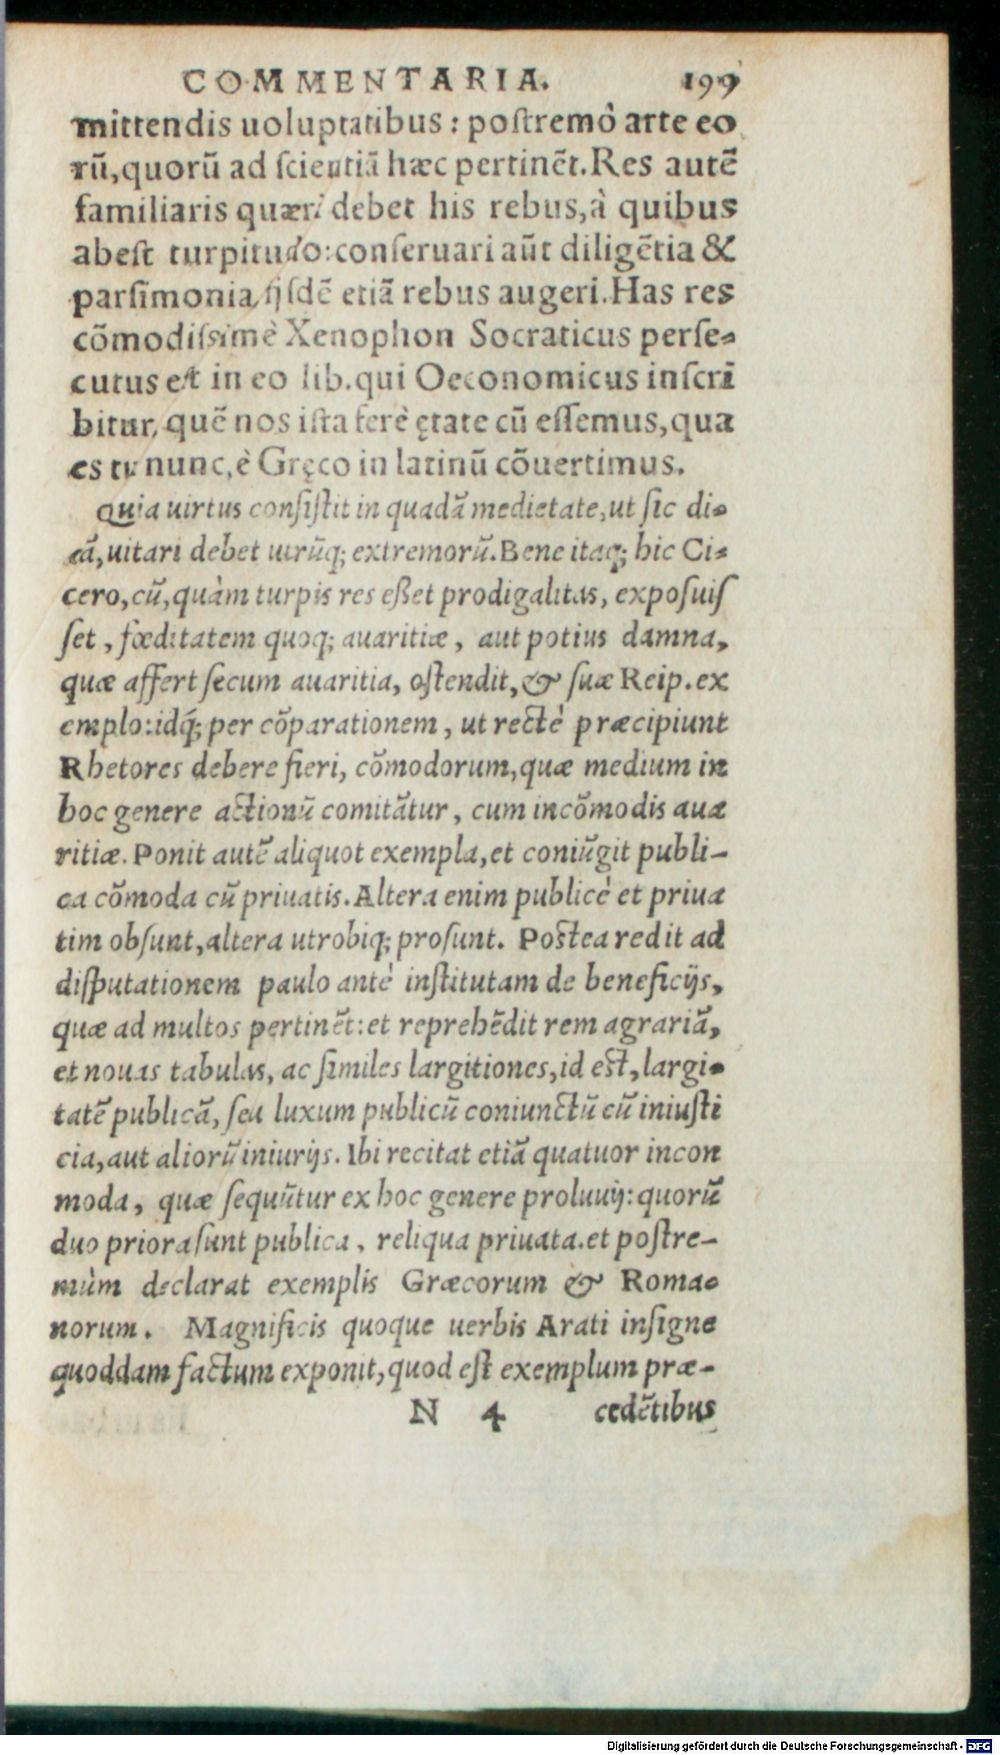 COMMENTARIA. 199
mittendis uoluptatibus: poſtremò arte eo
rũ,quorũ ad ſcientiã hæc pertinẽt.Res autẽ
familiaris quæri debet his rebus,à quibus
abeſt turpitudo:conſeruari aũt diligẽtia &
parſimonia,ijſdẽ etiã rebus augeri.Has res
cõmodiſsimè Xenophon Socraticus perſe-
cutus eſt in eo lib.qui Oeconomicus inſcrĩ
bitur, quẽ nos iſta ferè ętate cũ eſſemus,qua
es tu nunc,è Gręco in latinũ cõuertimus.
Quia uirtus conſiſtit in quadã medietate,ut ſic di-
cã,uitari debet utrũq; extremorũ.Bene itaq; hic Ci-
cero,cũ,quàm turpis res eßet prodigalitas, expoſuiſ
ſet, fœditatem quoq; auaritiæ, aut potius damna,
quæ affert ſecum auaritia, oſtendit,& ſuæ Reip.ex
emplo:idq́; per cõparationem, ut rectè præcipiunt
Rhetores debere fieri, cõmodorum,quæ medium in
hoc genere actionũ comitãtur, cum incõmodis aua
ritiæ. Ponit autẽ aliquot exempla,et coniũgit publi-
ca cõmoda cũ priuatis.Altera enim publicè et priua
tim obſunt,altera utrobiq; proſunt. Poſtea redit ad
diſputationem paulo antè inſtitutam de beneficijs,
quæ ad multos pertinẽt:et reprehẽdit rem agrariã,
et nouas tabulas, ac ſimiles largitiones,id eſt,largi-
tatẽ publicã, ſeu luxum publicũ coniunctũ cũ iniuſti
cia,aut aliorũ iniurijs. Ibi recitat etiã quatuor incon
moda, quæ ſequũtur ex hoc genere proluuij: quorũ
duo priora ſunt publica, reliqua priuata.et poſtre-
mùm declarat exemplis Græcorum & Roma-
norum. Magnificis quoque uerbis Arati inſigne
quoddam factum exponit,quod eſt exemplum præ-
N 4 cedẽtibus
Digitalisierung gefördert durch die Deutsche Forschungsgemeinschaft - DFG